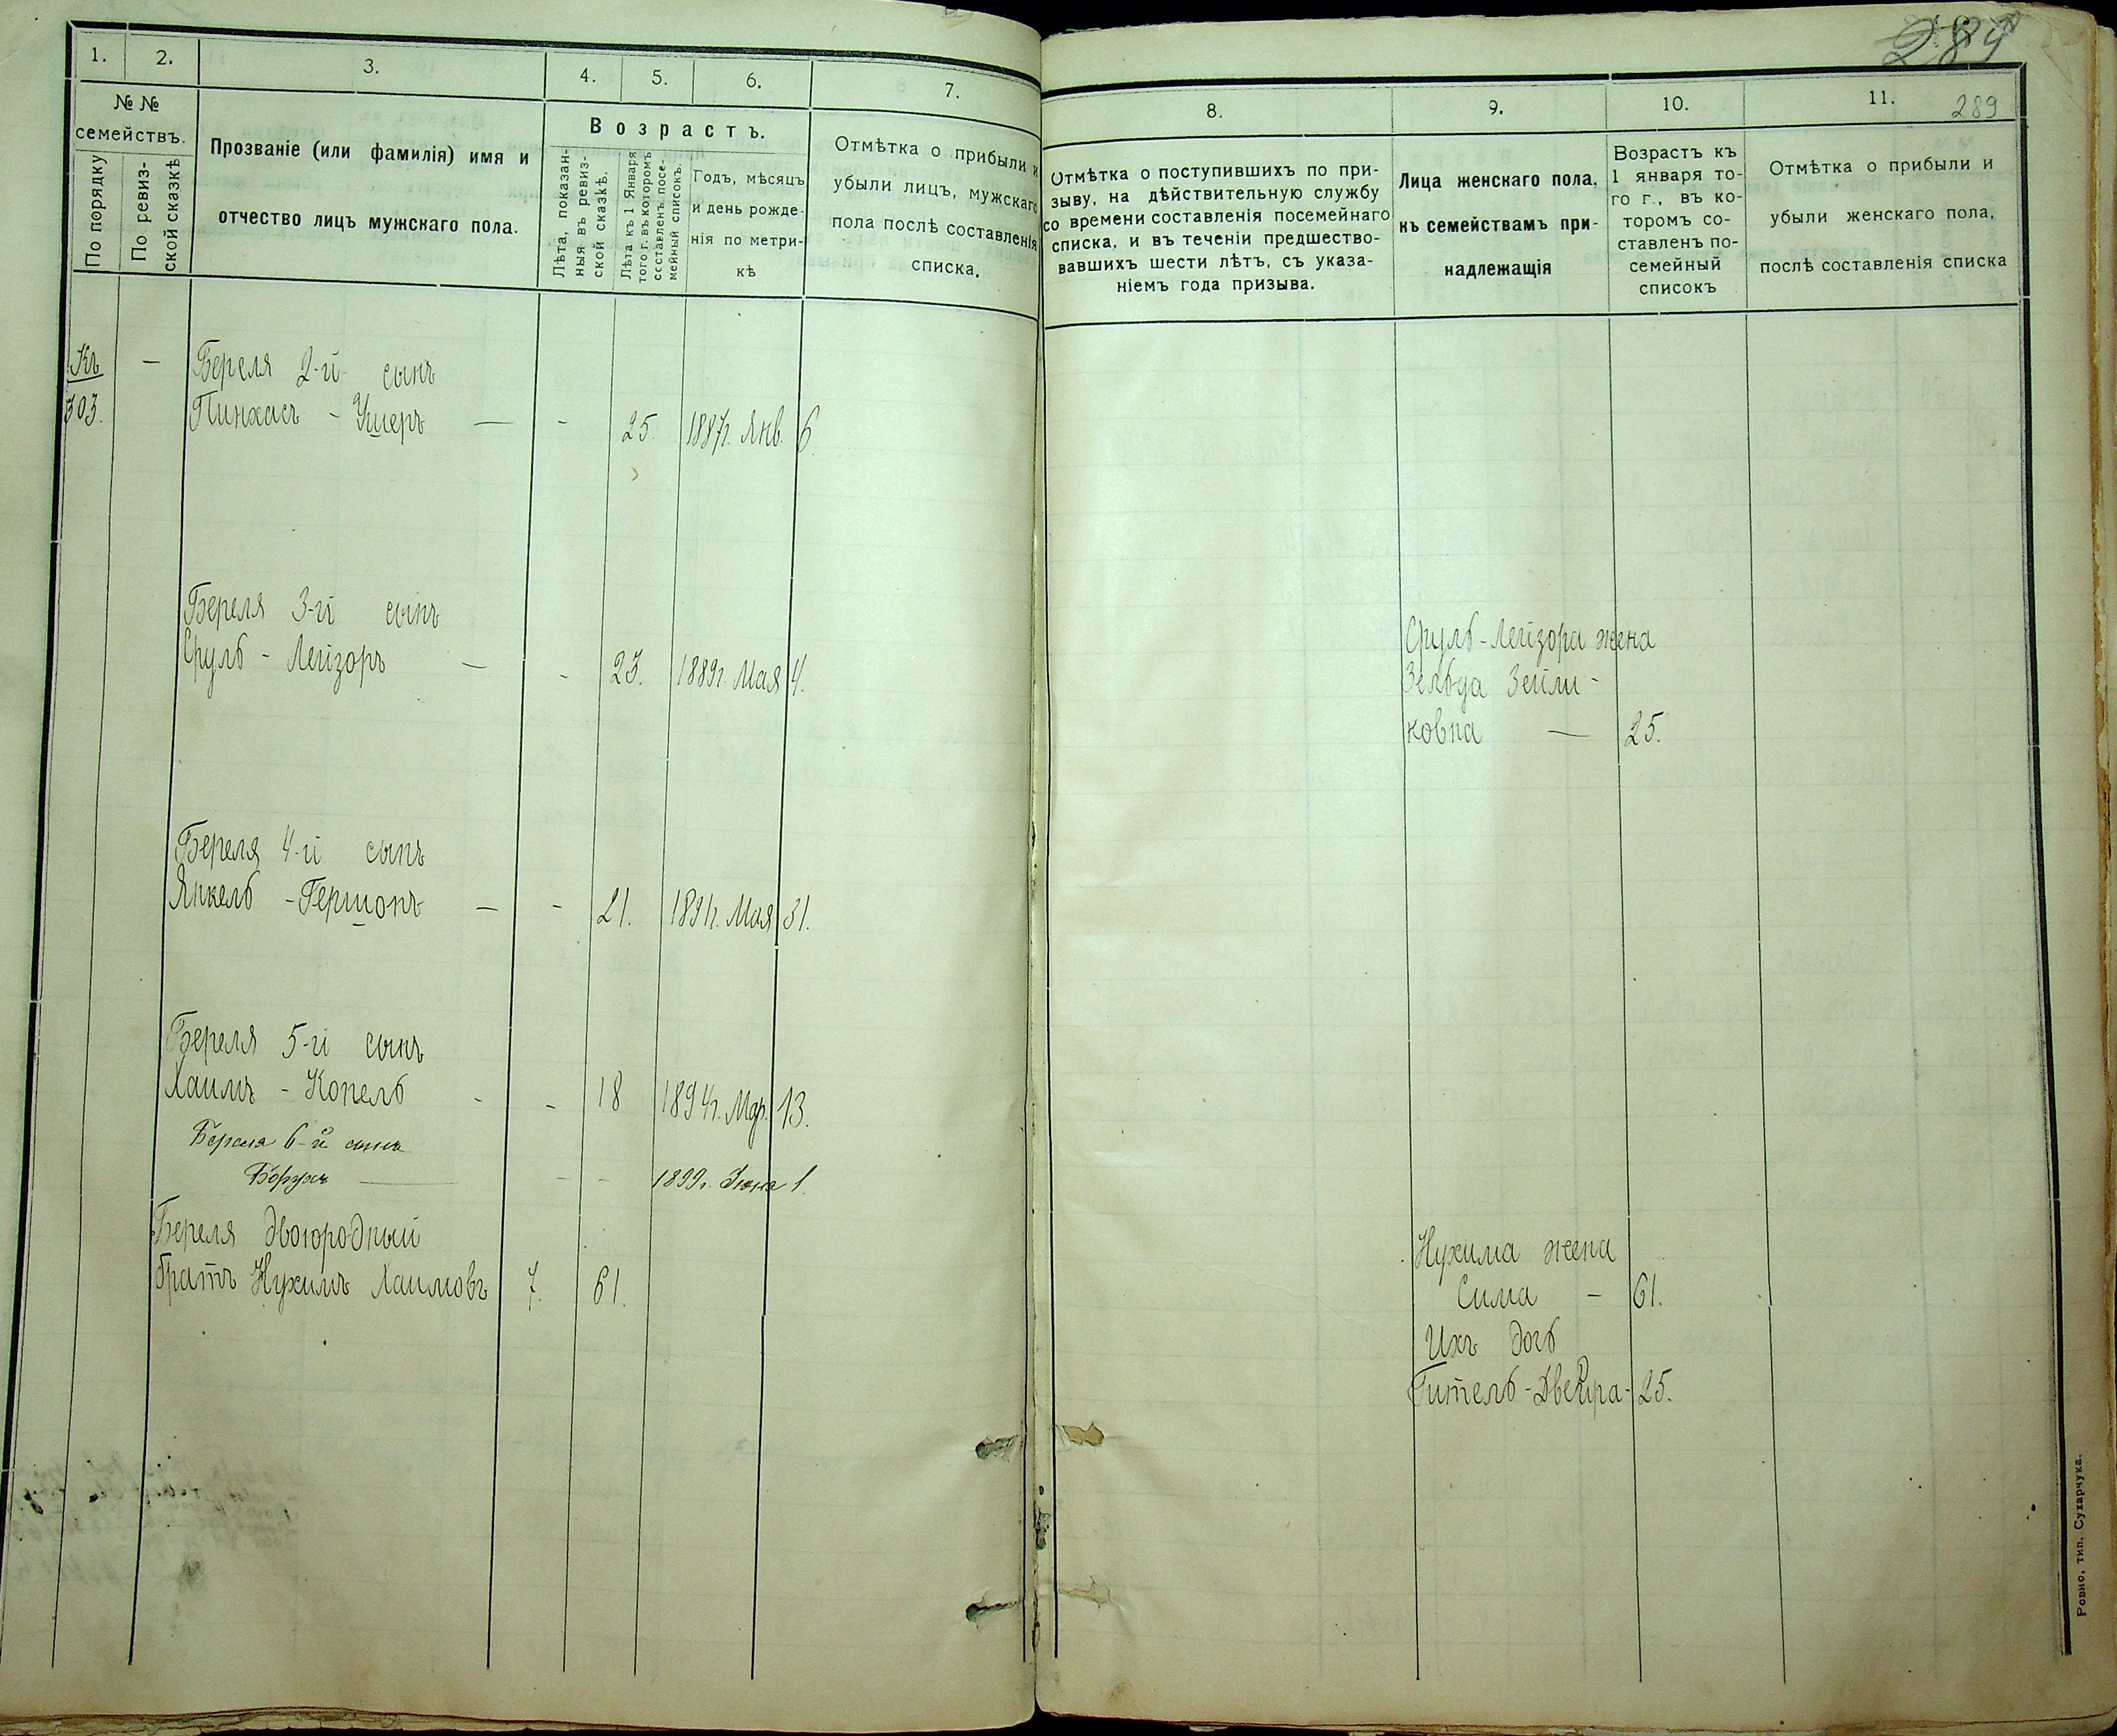 1. 2. 3. 4. 5. 6. 7.
№ №
семействъ.
По порядку
По ревиз-
ской сказкѣ
Прозваніе (или фамилія) имя и
отчество лицъ мужскаго пола.
Возрастъ.
Лѣта, показан-
ныя въ ревиз-
ской сказкѣ.
Лѣта къ 1 Января
того г. въ которомъ
составленъ посе-
мейный списокъ.
Годъ, мѣсяцъ
и день рожде-
нія по метри-
кѣ
Отмѣтка о прибыли и
убыли лицъ, мужскаго
пола послѣ составленія
списка.
Къ — Береля 2-й сынъ
303. Пинхасъ - Ушеръ — - 25. 1887г. Янв. 6.
Береля 3-й сынъ
Сруль - Лейзоръ — - 23. 1889г. Мая 4.
Береля 4-й сынъ
Янкель - Гершонъ — - 21. 1891г. Мая 31.
Береля 5-й сынъ
Хаимъ - Копель - - 18 1894г. Мар. 13.
Береля 6-й сынъ
— - - 1899г. Июня 1.
Береля двоюродный
братъ Нухимъ Хаимовъ 7. 61.
289
8. 9. 10. 11.
289
Отмѣтка о поступившихъ по при-
зыву, на дѣйствительную службу
со времени составленія посемейнаго
списка, и въ теченіи предшество-
вавшихъ шести лѣтъ, съ указа-
ніемъ года призыва.
Лица женскаго пола,
къ семействамъ при-
надлежащія
Возрастъ къ
1 января то-
го г., въ ко-
торомъ со-
ставленъ по-
семейный
списокъ
Отмѣтка о прибыли и
убыли женскаго пола,
послѣ составленія списка
Сруль-Лейзора жена
Зельда Зейли-
ковна — 25.
Нухима жена
Сима - 61.
Ихъ дочь
Гитель-Двейра- 25.
Ровно, тип. Сухарчука.